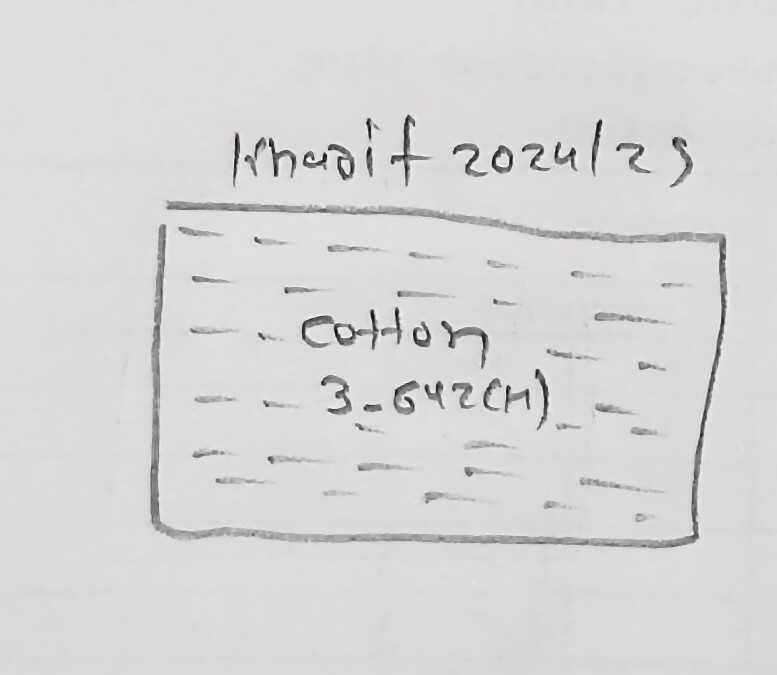 Kharif 2024/25
Cotton
3-642(H)